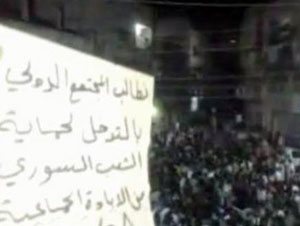 نطالب المجتمع الدولي
بالتدخل لحماية
الشعب السوري
من الابادة الجماعية